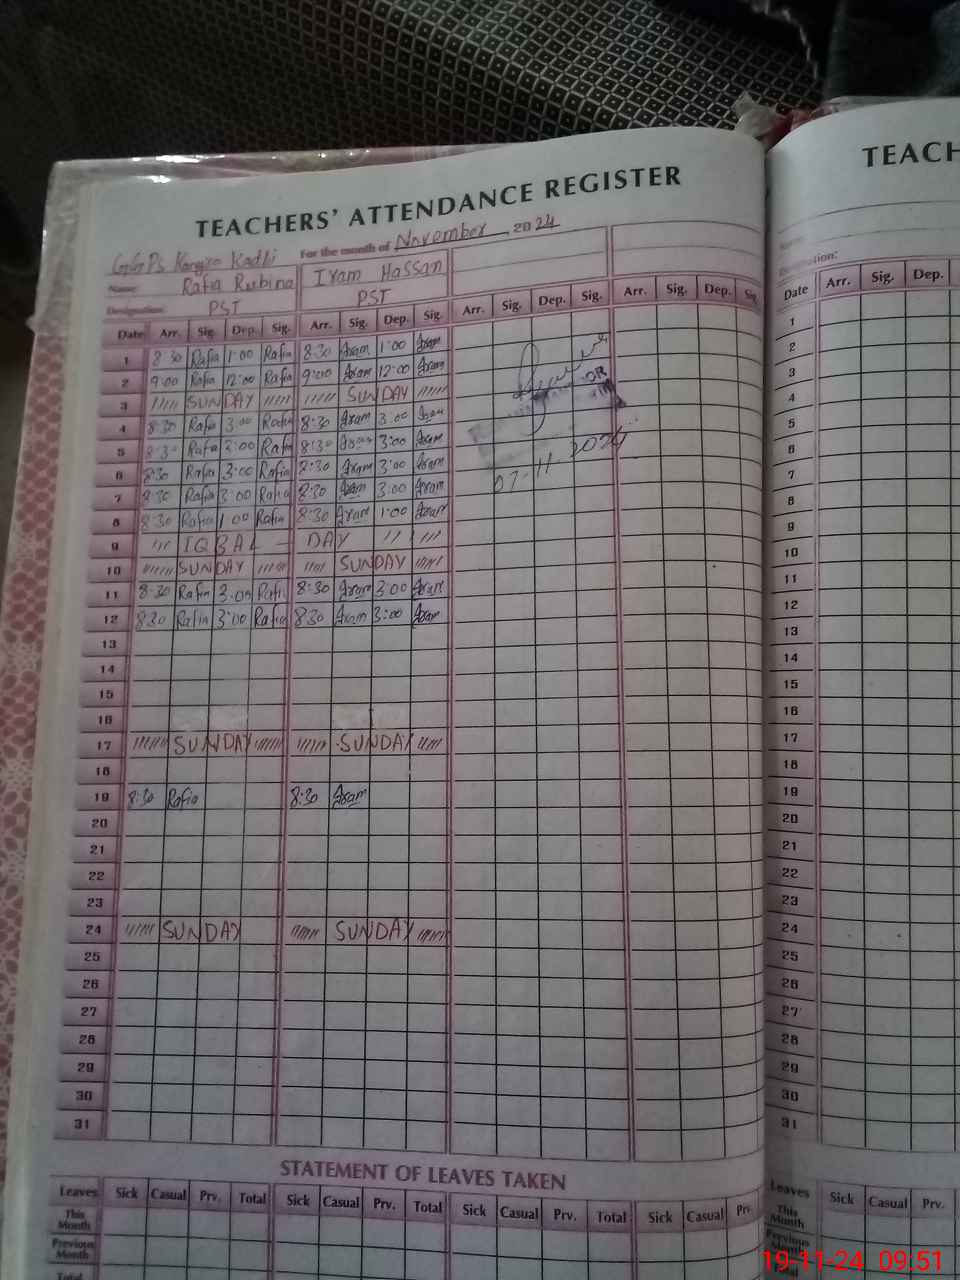 TEACHERS' ATTENDANCE REGISTER
For the month of November 2024
GGPS Kadli
Name: Rafia Rubina Iram Hassan
Designation: PST PST
Date Arr. Sig. Dep. Sig. Arr. Sig. Dep. Sig. Arr. Sig. Dep. Sig. Arr. Sig. Dep. Sig.
1 8:30 Rafia 1:00 Rafia 8:30 Iram 1:00 Iram
2 9:00 Rafia 12:00 Rafia 9:00 Iram 12:00 Iram
3 SUNDAY SUNDAY
4 8:30 Rafia 3:00 Rafia 8:30 Iram 3:00 Iram
5 8:30 Rafia 3:00 Rafia 8:30 Iram 3:00 Iram
6 8:30 Rafia 3:00 Rafia 8:30 Iram 3:00 Iram
7 8:30 Rafia 3:00 Rafia 8:30 Iram 3:00 Iram
8 8:30 Rafia 1:00 Rafia 8:30 Iram 1:00 Iram
9 IQBAL - DAY
10 SUNDAY SUNDAY
11 8:30 Rafia 3:00 Rafia 8:30 Iram 3:00 Iram
12 8:30 Rafia 3:00 Rafia 8:30 Iram 3:00 Iram
13
14
15
16
17 SUNDAY SUNDAY
18
19 8:30 Rafia 8:30 Iram
20
21
22
23
24 SUNDAY SUNDAY
25
26
27
28
29
30
31
07-11-2024
STATEMENT OF LEAVES TAKEN
Leaves Sick Casual Prv. Total Sick Casual Prv. Total Sick Casual Prv. Total Sick Casual Prv.
This Month
Previous Month
Total
TEACH
Name:
Date Arr. Sig. Dep.
1
2
3
4
5
6
7
8
9
10
11
12
13
14
15
16
17
18
19
20
21
22
23
24
25
26
27
28
29
30
31
Leaves Sick Casual Prv.
This Month
Previous Month
Total
19-11-24 09:51